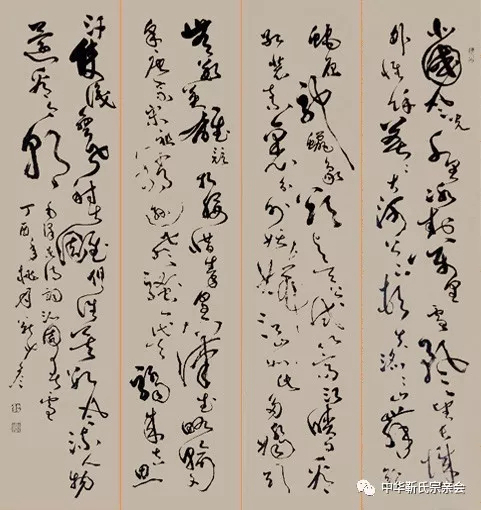 北國风光千里冰封万里雪飘望长城
内外惟馀莽莽大河上下顿失滔滔山舞银
蛇原驰蠟象欲与天公试比高须晴日看
红装素裹分外妖娆江山如此多娇引
无数英雄竞折腰惜秦皇汉武略输文
采唐宗宋祖稍逊风骚一代天骄成吉思
汗隻识弯弓射大雕俱往矣数风流人物
还看今朝
毛泽东诗词沁園春雪
丁酉年
中华靳氏宗亲会